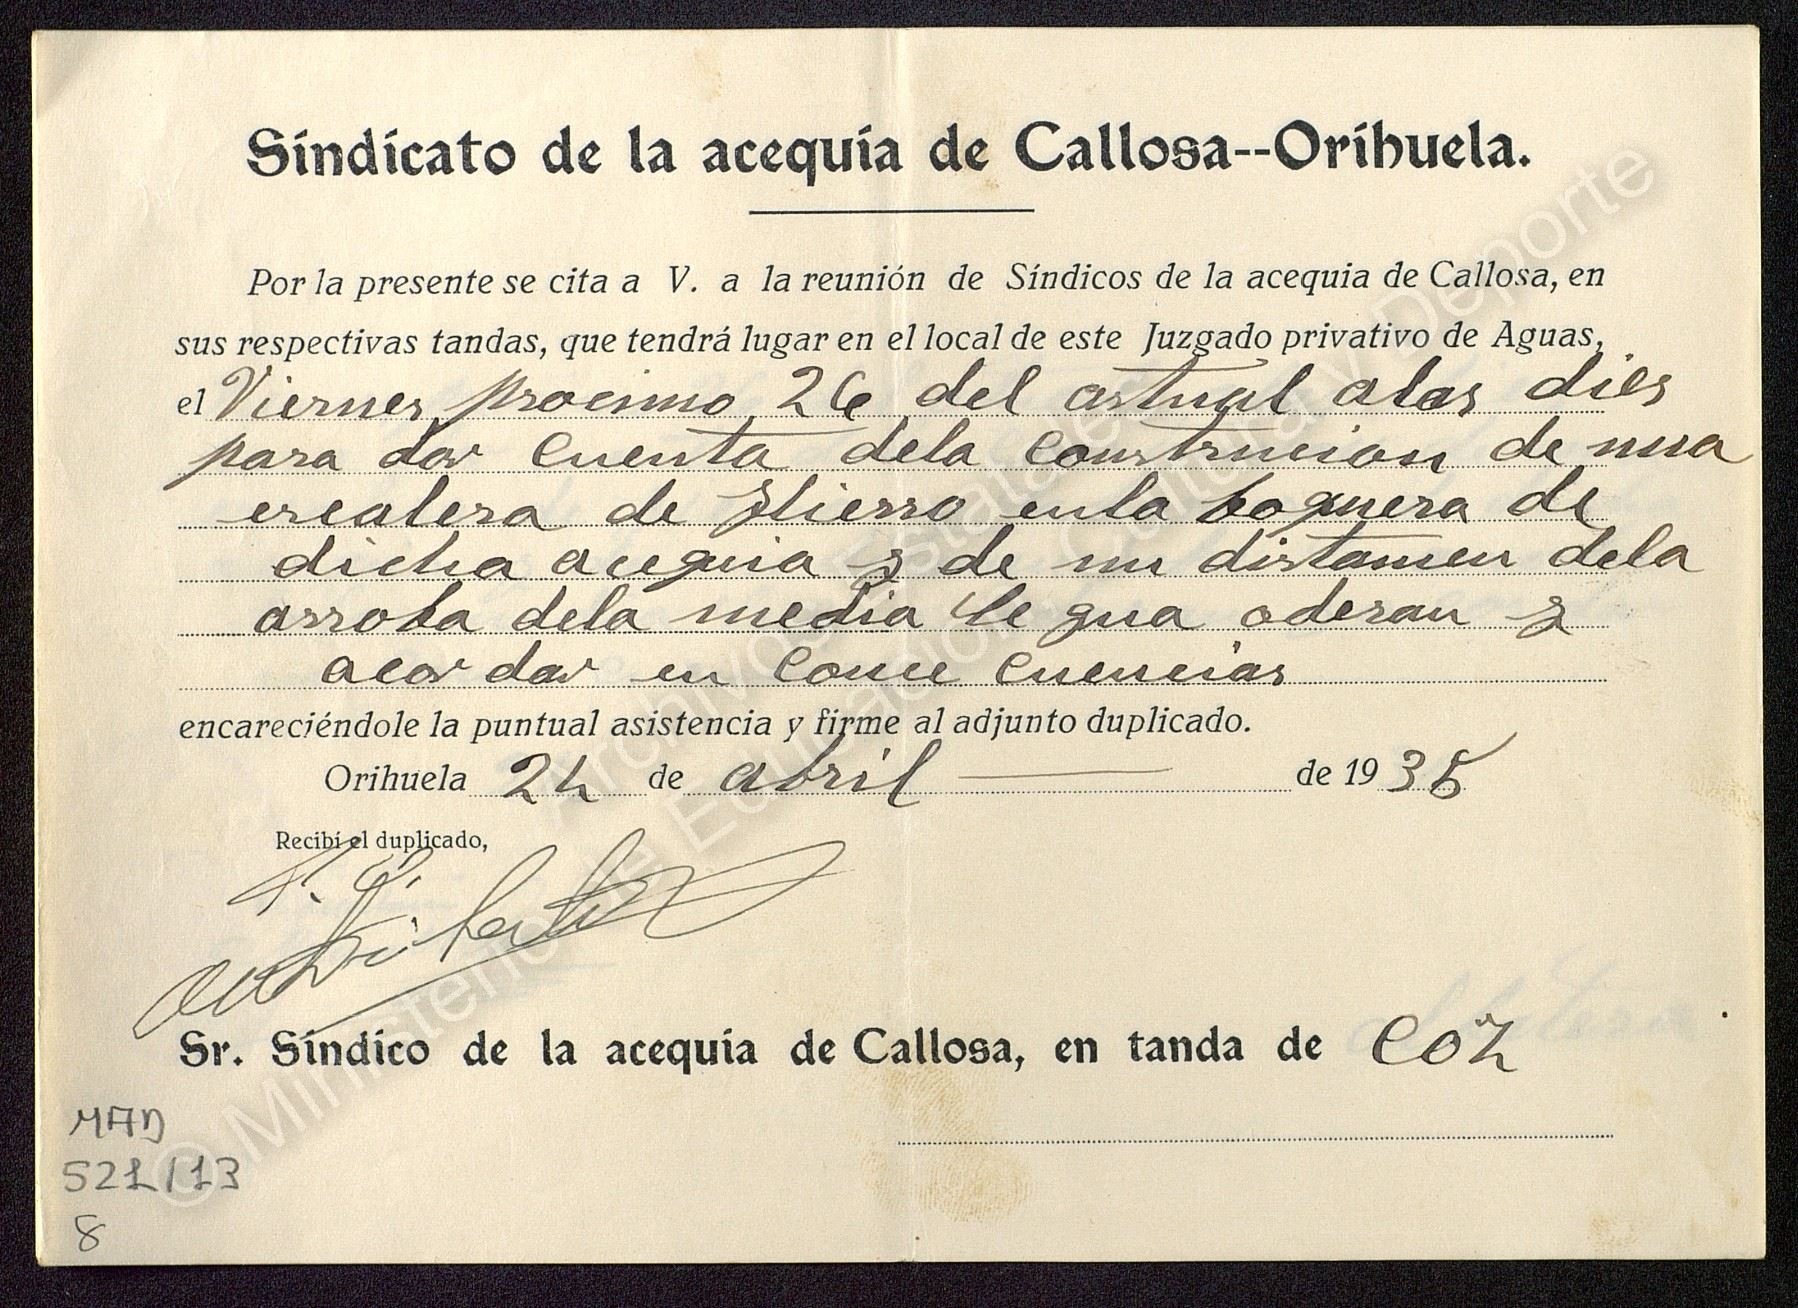 Sindicato de la acequia de Callosa--Orihuela.
Por la presente se cita a V. a la reunión de Síndicos de la acequia de Callosa, en
sus respectivas tandas, que tendrá lugar en el local de este Juzgado privativo de Aguas,
el Viernes procimo 26 del astual alas dies
para dar cuenta dela construcion de una
escalera de Hierro enla boquera de
dicha acequia y de un distamen dela
arroba dela media le gua oderan y
acor dar en conce cuencias
encareciéndole la puntual asistencia y firme al adjunto duplicado.
Orihuela 24 de abril de 1935
Recibí el duplicado,
Sr. Síndico de la acequia de Callosa, en tanda de Coz
MAD
521/13
8
© Ministerio de Educación, Cultura y Deporte
Archivos Estatales